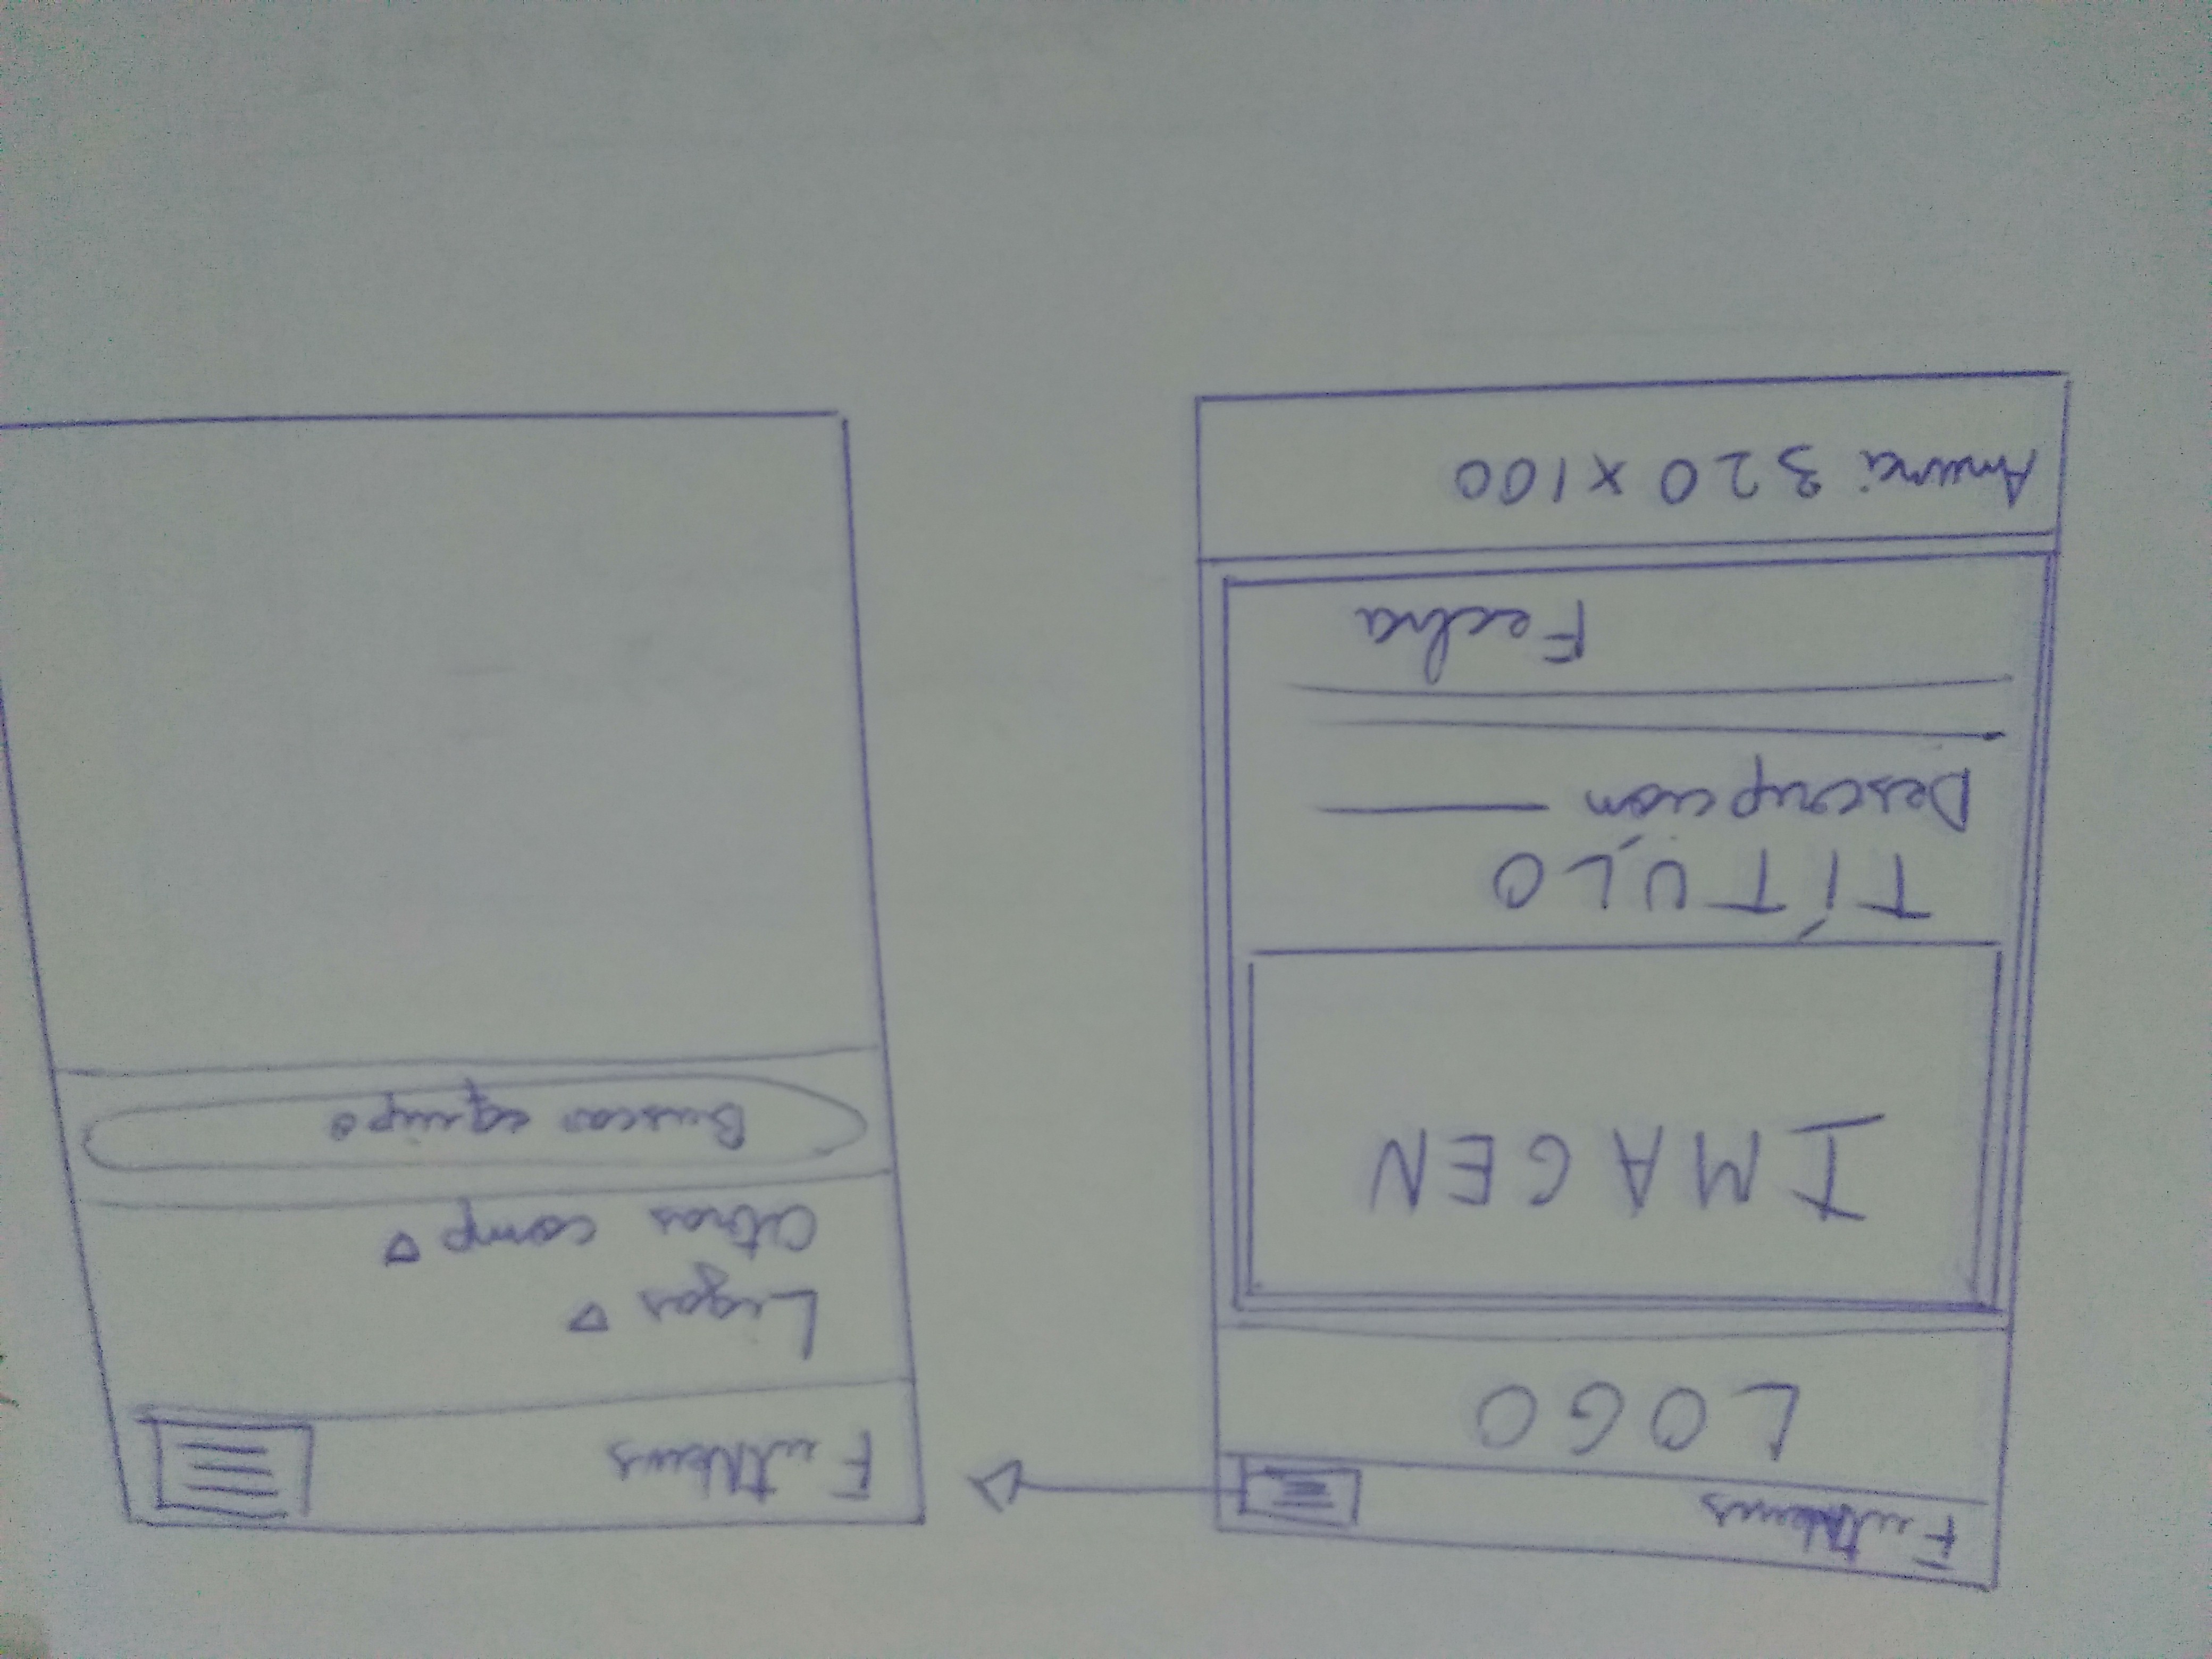 FutNews
LOGO
IMAGEN
TÍTULO
Descripción
Fecha
Anunci 320x100
FutNews
Ligas ▽
Otras comp ▽
Buscar equipo